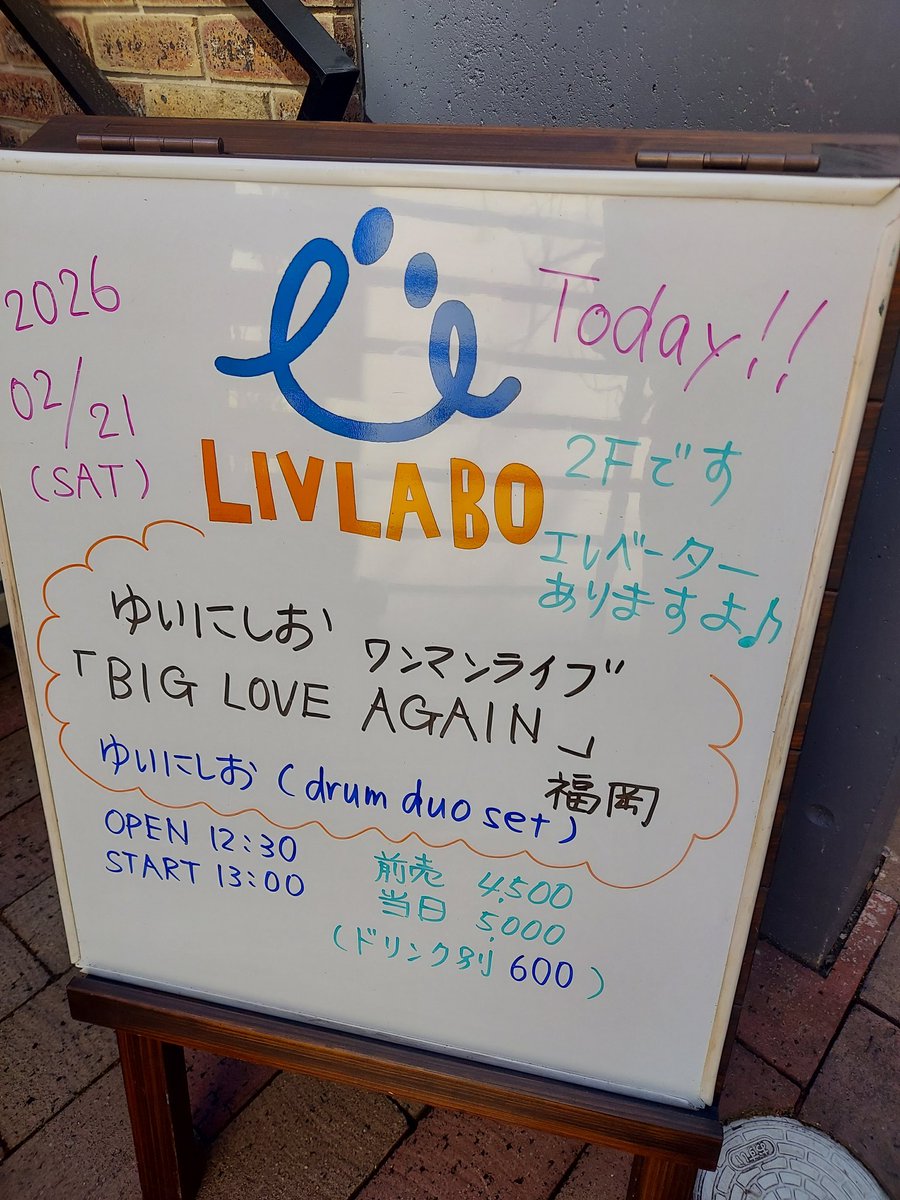 2026
02/21
(SAT)
Today!!
LIVLABO
2Fです
エレベーター
ありますよ♪
ゆいにしお ワンマンライブ
「BIG LOVE AGAIN」
福岡
ゆいにしお (drum duo set)
OPEN 12:30
START 13:00
前売 4,500
当日 5,000
(ドリンク別 600)